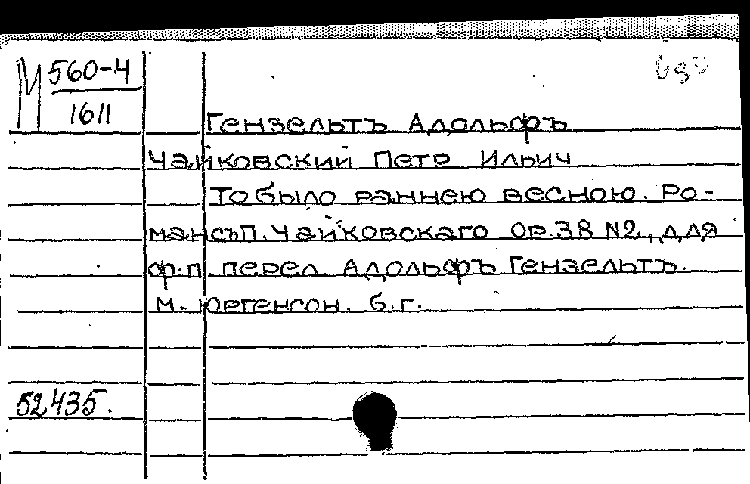 М 560-4
1611
Гензельтъ Адольфъ
Чайковский Петр Ильич
То было раннею весною. Ро-
мансъ П. Чайковскаго Ор. 38 N2, для
ф.п. перел. Адольфъ Гензельтъ.
М. Юргенсон. б.г.
52435.